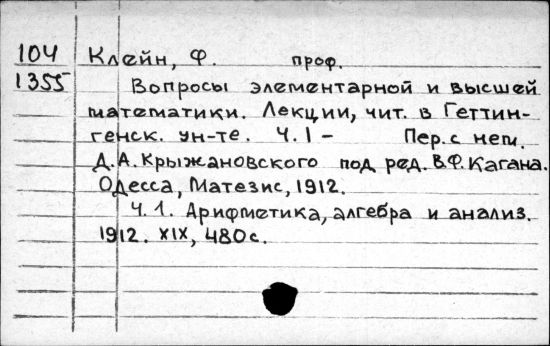 104 Клейн, Ф. проф.
1355 Вопросы элементарной и высшей
математики. Лекции, чит. в Геттин-
генск. ун-те. Ч. I – Пер. с нем.
Д. А. Крыжановского под ред. В. Ф. Кагана.
Одесса, Матезис, 1912.
Ч. 1. Арифметика, алгебра и анализ.
1912. XIX, 480 с.